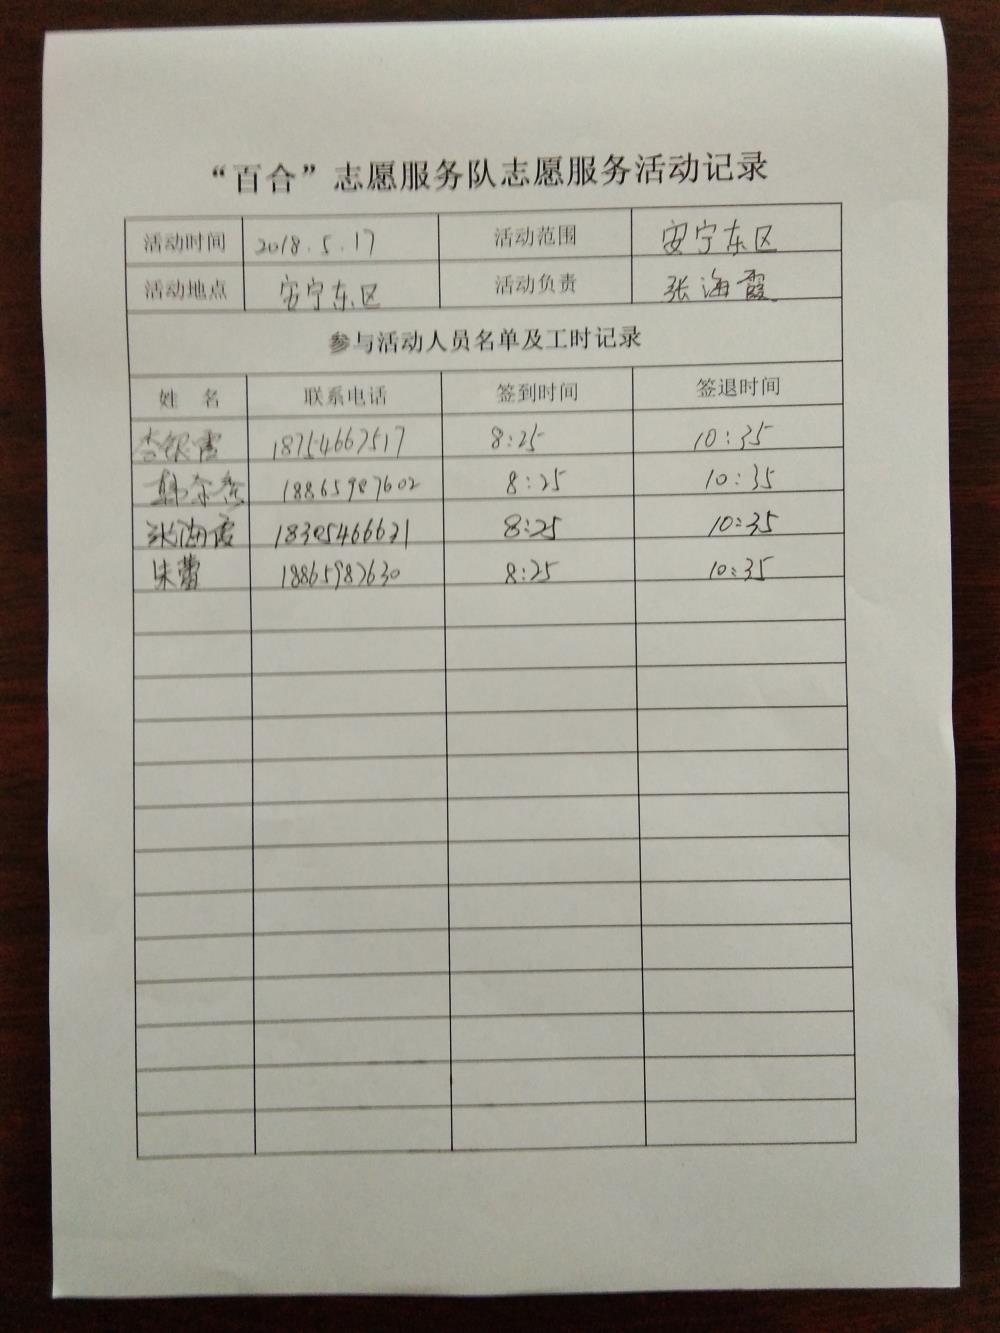 “百合”志愿服务队志愿服务活动记录
活动时间 2018.5.17 活动范围 安宁东区
活动地点 安宁东区 活动负责 张海霞
参与活动人员名单及工时记录
姓 名 联系电话 签到时间 签退时间
李银霞 18754667517 8:25 10:35
韩 18865987602 8:25 10:35
张海霞 18305466621 8:25 10:35
朱蕾 18865987630 8:25 10:35